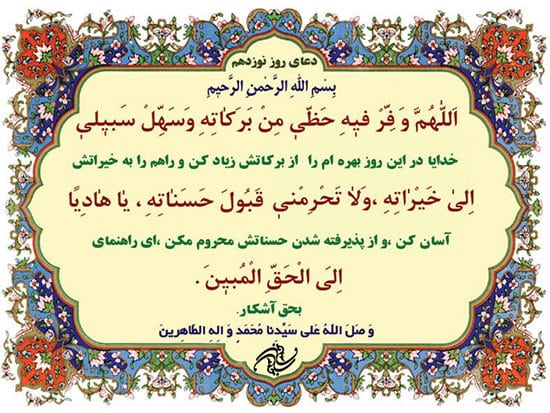 دعای روز نوزدهم
بِسْمِ اللهِ الرَّحْمنِ الرَّحیمِ
اَللّٰهُمَّ وَفِّرْ فیهِ حَظّی مِنْ بَرَکاتِهِ وَسَهِّلْ سَبیلی
خدایا در این روز بهره ام را از برکاتش زیاد کن و راهم را به خیراتش
اِلیٰ خَیْراتِهِ ،وَلاٰ تَحْرِمْنی قَبُولَ حَسَناتِهِ ، یٰا هٰادِیًا
آسان کن ،و از پذیرفته شدن حسناتش محروم مکن ،ای راهنمای
اِلیَ الْحَقِّ الْمُبینَ .
بحق آشکار.
وَ صَلَ اللهُ عَلی سَیِّدِنا مُحَمَدٍ وَ الِهِ الطّاهِرینَ